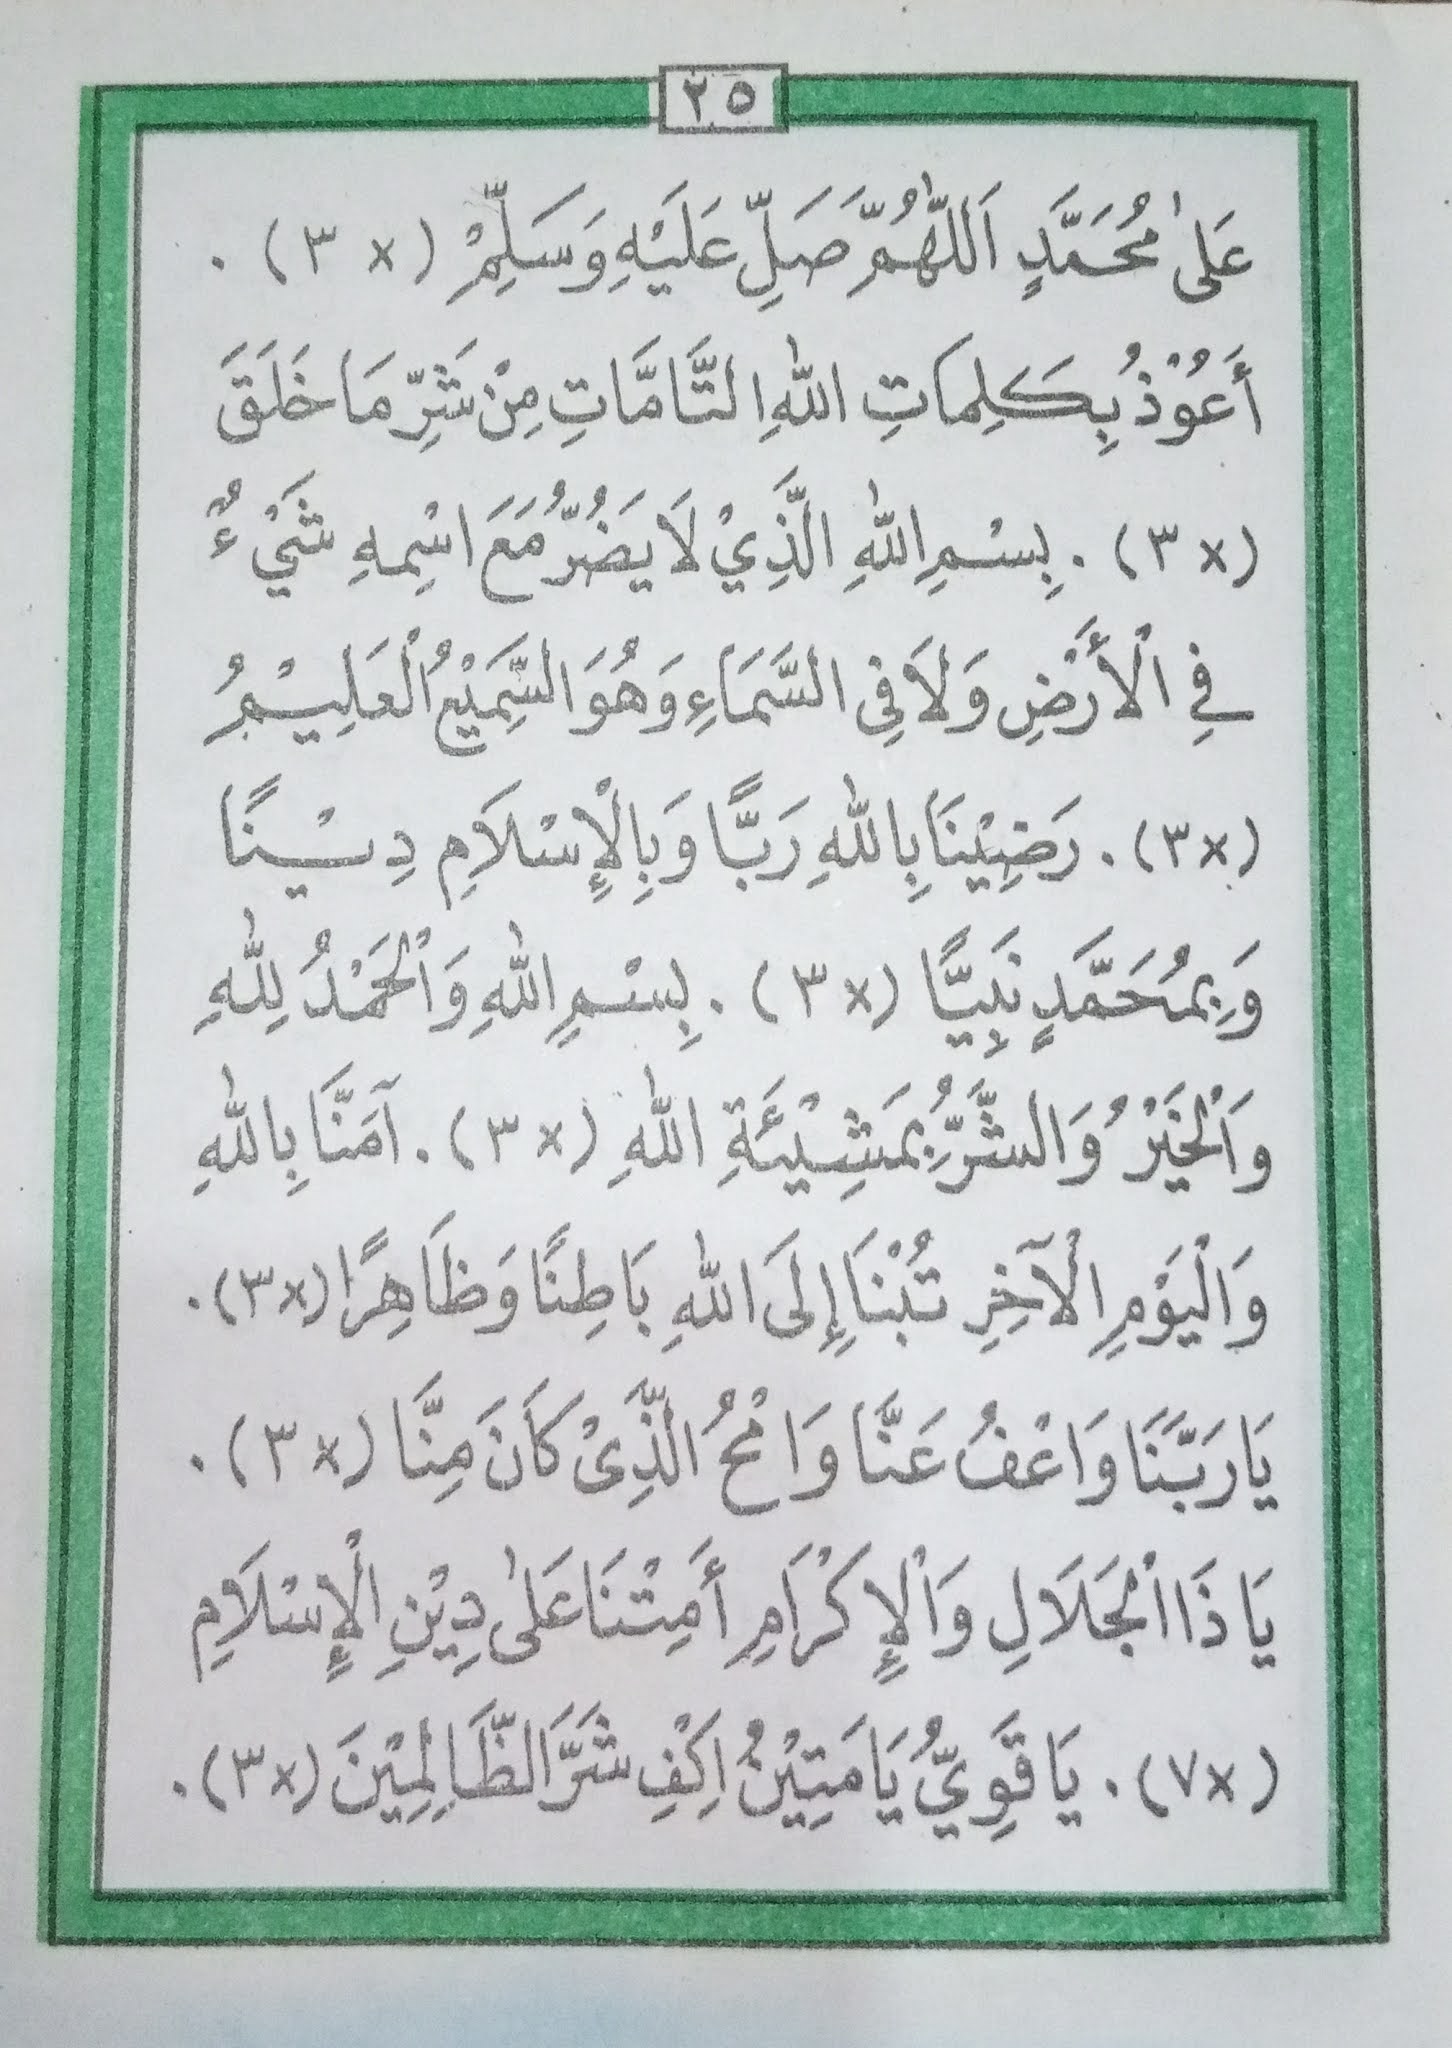 ٢٥
عَلىٰ مُحَمَّدٍ اَللّٰهُمَّ صَلِّ عَلَيْهِ وَسَلِّمْ (×٣) .
أَعُوْذُ بِكَلِمَاتِ اللّٰهِ التَّامَّاتِ مِنْ شَرِّ مَا خَلَقَ
(×٣) . بِسْمِ اللّٰهِ الَّذِيْ لَا يَضُرُّ مَعَ اسْمِهِ شَيْءٌ
فِي الْأَرْضِ وَلَا فِى السَّمَاءِ وَهُوَ السَّمِيْعُ الْعَلِيْمُ
(×٣) . رَضِيْنَا بِاللّٰهِ رَبًّا وَبِالْإِسْلَامِ دِيْنًا
وَبِمُحَمَّدٍ نَبِيًّا (×٣) . بِسْمِ اللّٰهِ وَالْحَمْدُ لِلّٰهِ
وَالْخَيْرُ وَالشَّرُّ بِمَشِيْئَةِ اللّٰهِ (×٣) . آمَنَّا بِاللّٰهِ
وَالْيَوْمِ الْآخِرِ تُبْنَا إِلَى اللّٰهِ بَاطِنًا وَظَاهِرًا (×٣) .
يَا رَبَّنَا وَاعْفُ عَنَّا وَامْحُ الَّذِىْ كَانَ مِنَّا (×٣) .
يَا ذَا الْجَلَالِ وَالْإِكْرَامِ أَمِتْنَا عَلىٰ دِيْنِ الْإِسْلَامِ
(×٧) . يَا قَوِيُّ يَا مَتِيْنُ اِكْفِ شَرَّ الظَّالِمِيْنَ (×٣) .